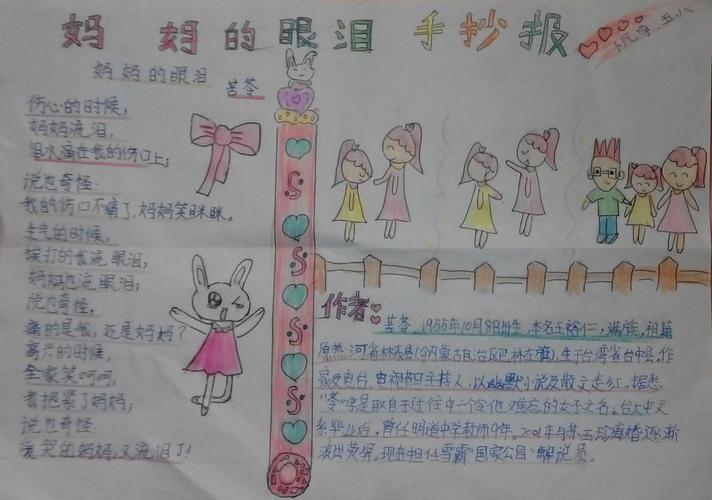 妈妈的眼泪 手抄报
五、八
妈妈的眼泪
苦苓
伤心的时候，
妈妈流泪，
泪水滴在我的伤口上；
说也奇怪：
我的伤口不痛了，妈妈笑眯眯。
生气的时候，
挨打的我流眼泪，
妈妈也流眼泪；
说也奇怪，
痛的是我，还是妈妈？
高兴的时候，
全家笑呵呵，
我抱紧了妈妈；
说也奇怪：
爱哭的妈妈，又流泪了！
作者
苦苓，1955年10月8日出生，本名王裕仁，满族，祖籍
原热河省林东县（今内蒙古自治区巴林左旗），生于台湾省台中县。作
家及电台、电视节目主持人，以幽默小说及散文走红。据悉，
“苓”字是取自于过往中一令他难忘的女子之名。台大中文
系毕业后，曾任明道中学教师9年。2001年与苏玉珍离婚，逐渐
淡出荧屏。现在担任雪霸“国家公园”解说员。